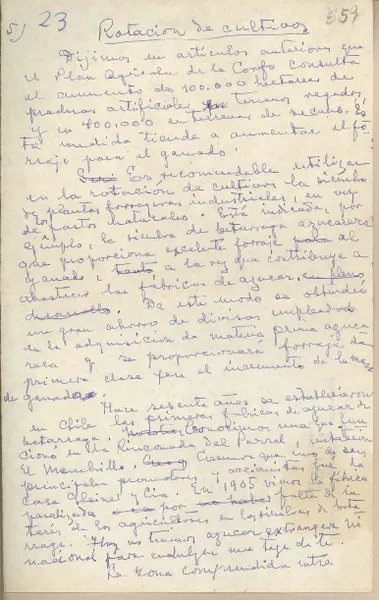 5) 23 57
Rotacion de cultivos
Dijimos en artículos anteriores que
el Plan Agricola de la Corfo consulta
el aumento de 100.000 hectareas de
praderas artificiales terrenos regados
y en 400.000 en terrenos de secano. Es
ta medida tiende a aumentar el fo
rraje para el ganado.
Es recomendable utilizar
en la rotacion de cultivos la siembra
de plantas forrageras industriales, en vez
de pastos naturales. Está indicada, por
ejemplo, la siembra de betarraga azucarera
que proporciona excelente forraje al
ganado, a la vez que contribuye a
abastecer las fábricas de azucar
De este modo se obtendrá
un gran ahorro de divisas empleadas
en la adquisicion de materia prima azuca
rera y se proporcionará forraje de
primera clase para el incremento de la masa
de ganados.
Hace sesenta años se establecieron
en Chile las primeras fábricas de azucar de
betarraga. Conocimos una que fun
cionó en la Rinconada del Parral,
El Membrillo. Creemos que uno de sus
principales promotores y accionistas fue la
Casa y Cia. En 1905 vimos la fábrica
paralizada por falta de in
terés de los agricultores en las siembras de beta
rraga. Hoy no tenemos azucar extrangera ni
nacional para endulzar una taza de té.
La zona comprendida entre